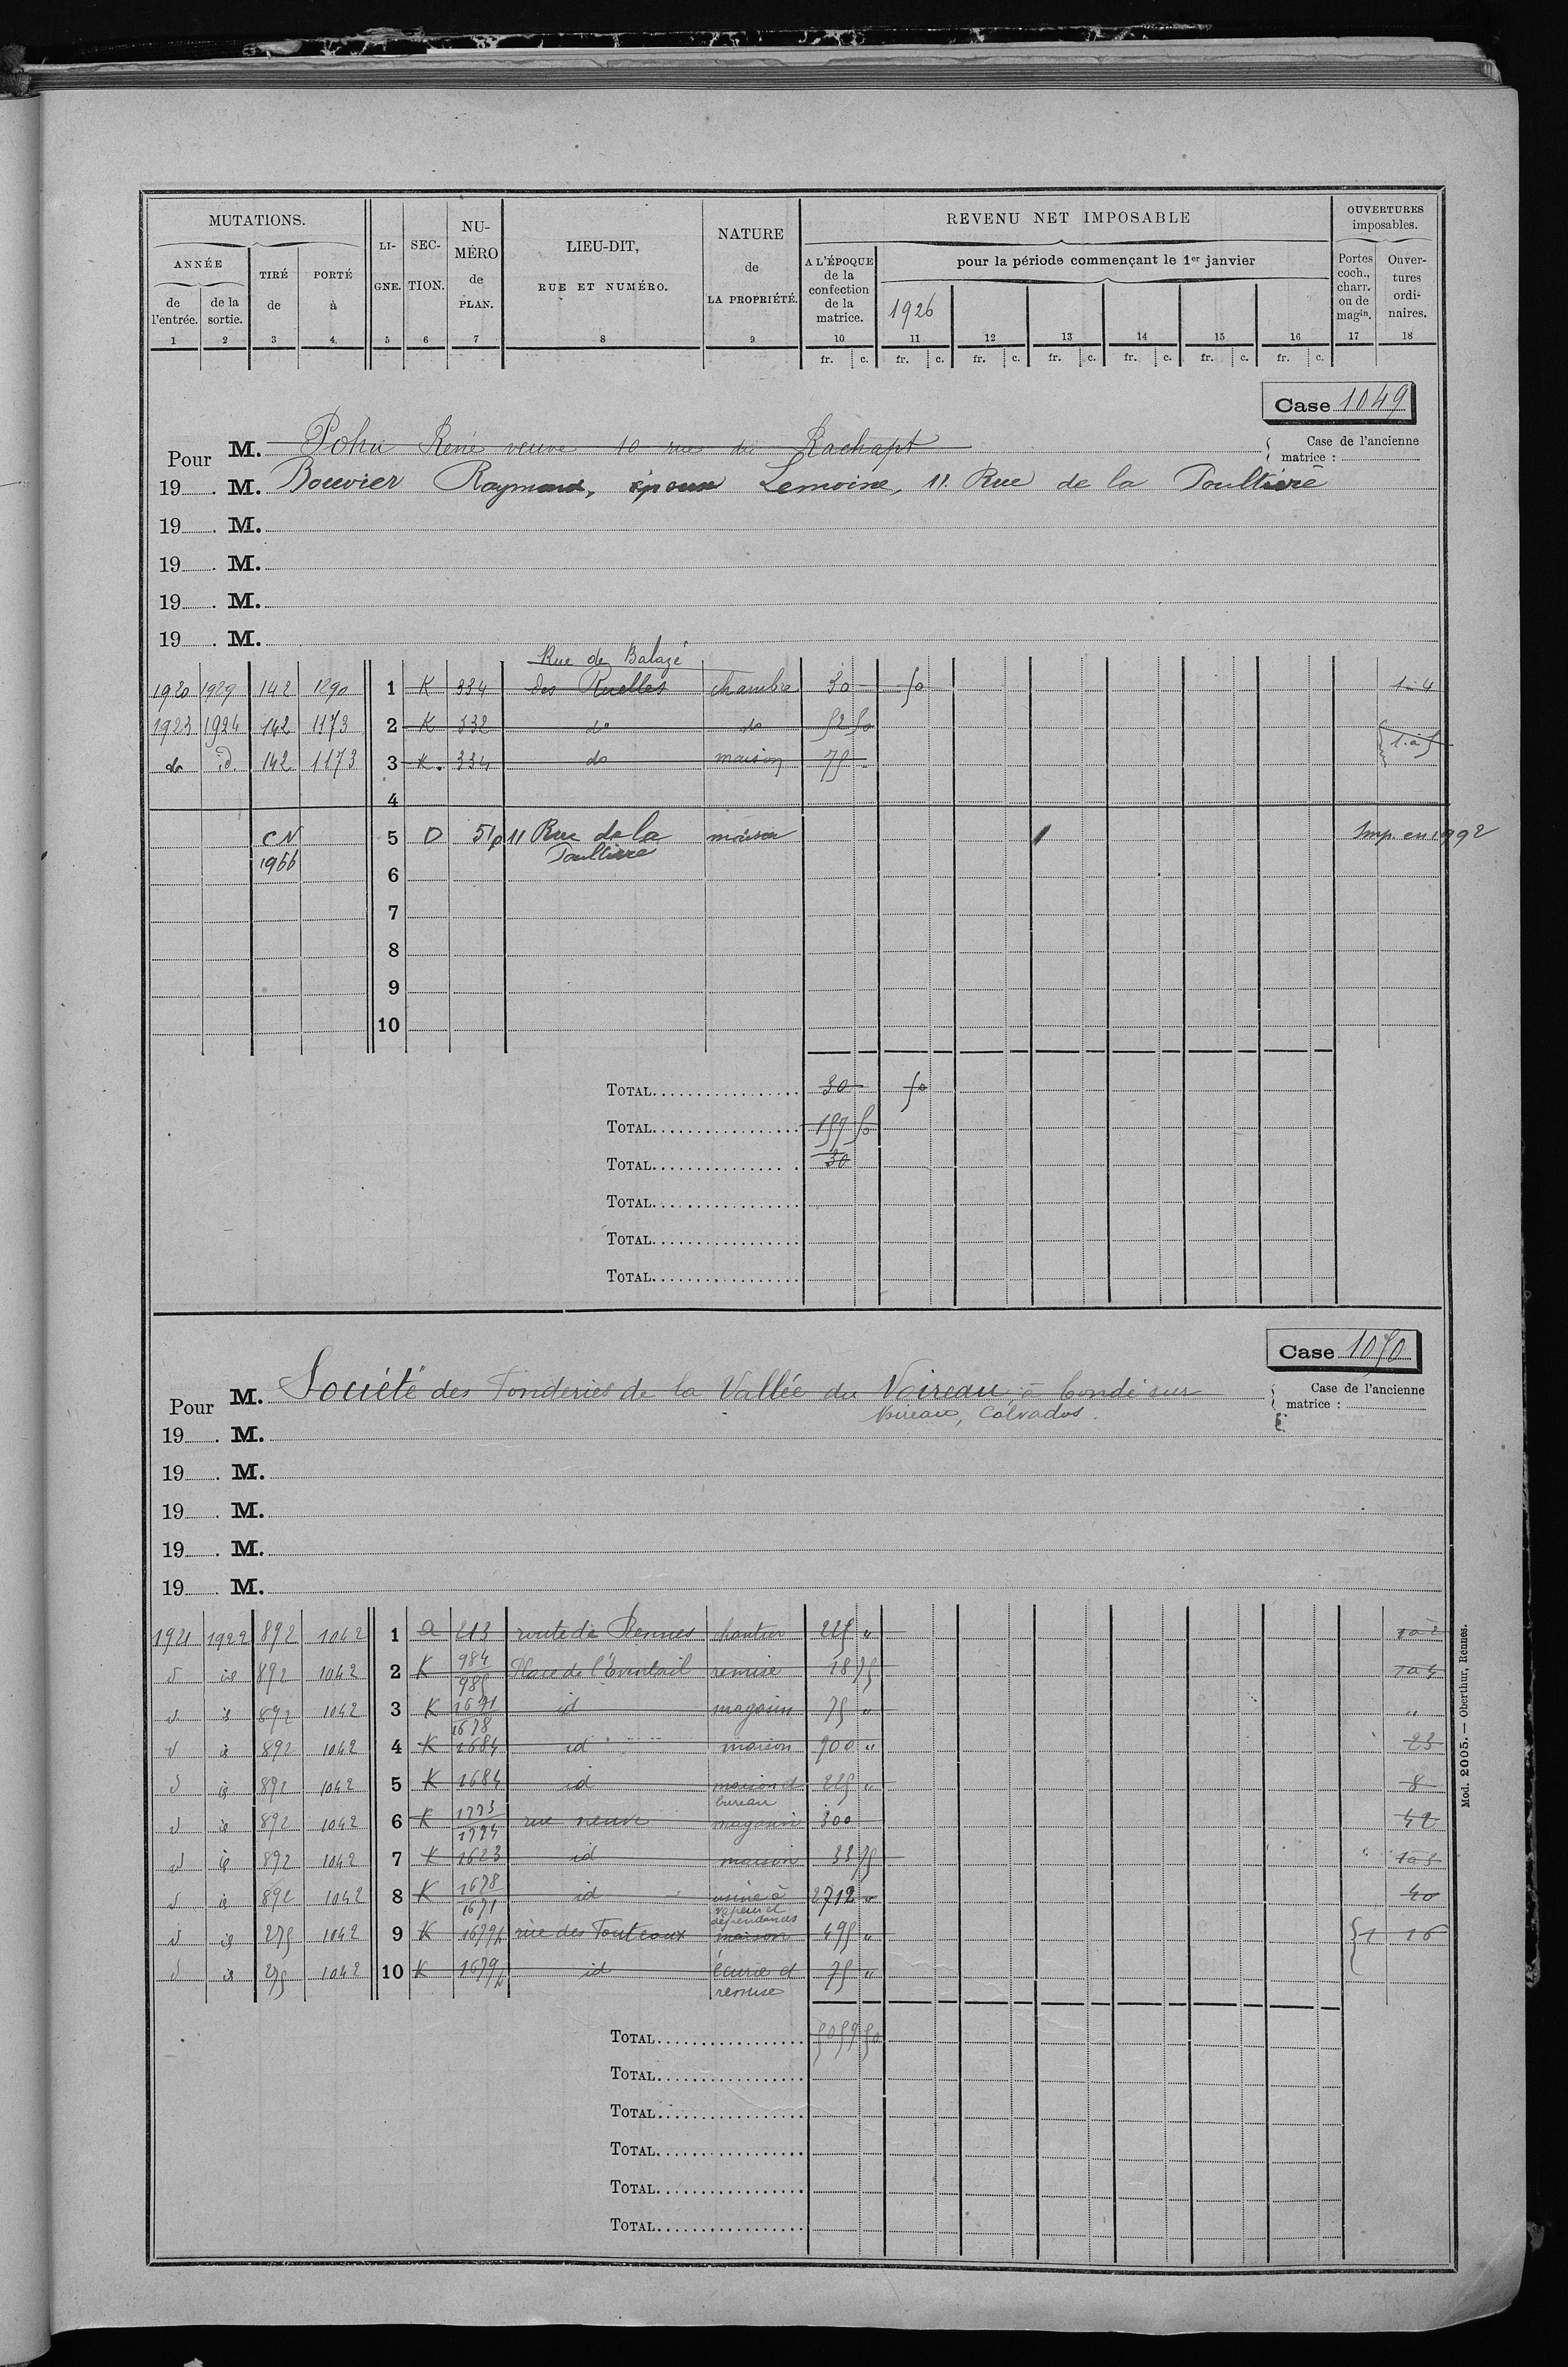 MUTATIONS.
ANNÉE
de l'entrée.
de la sortie.
TIRÉ de
PORTÉ à
LIGNE.
SECTION.
NUMÉRO de PLAN.
LIEU-DIT,
RUE ET NUMÉRO.
NATURE de LA PROPRIÉTÉ.
REVENU NET IMPOSABLE
A L'ÉPOQUE de la confection de la matrice.
pour la période commençant le 1er janvier
1926
OUVERTURES imposables.
Portes coch., charr. ou de magin.
Ouvertures ordinaires.
1 2 3 4 5 6 7 8 9 10 11 12 13 14 15 16 17 18
fr. c. fr. c. fr. c. fr. c. fr. c. fr. c. fr. c.
Case 1049
Pour M. Pohu René veuve 10 rue du Rachapt
Case de l'ancienne matrice :
19 . M. Bouvier Raymond, époux Lemoine, 11. Rue de la Poultière
19 . M.
19 . M.
19 . M.
19 . M.
Rue de Balazé
1920 1929 142 1290 1 K 334 des Ruelles chambre 30 50 1 à 4
1923 1924 142 1173 2 K 332 do do 52 50
do id. 142 1173 3 K. 334 do maison 75 " 1 à 5
4
CN 5 D 51p 11 Rue de la maison Imp. en 1992
1966 Poultière
6
7
8
9
10
TOTAL 30 50
TOTAL 157 50
TOTAL 30
TOTAL
TOTAL
TOTAL
Case 1050
Pour M. Société des Fonderies de la Vallée du Noireau à Condé sur
Noireau, Calvados.
Case de l'ancienne matrice :
19 . M.
19 . M.
19 . M.
19 . M.
19 . M.
1921 1922 892 1042 1 a 213 route de Rennes chantier 225 " 1 à 2
d id 892 1042 2 K 984 985 Place de l'Eventail remise 18 75 1 à 4
d id 892 1042 3 K 1671 1678 id magasin 75 " "
d id 892 1042 4 K 1684 id maison 900 " 23
d id 892 1042 5 K 1684 id maison et bureau 225 " 8
d id 892 1042 6 K 1773 1774 rue neuve magasin 300 42
d id 892 1042 7 K 1623 id maison 33 75 1 à 5
d id 892 1042 8 K 1678 1671 id usine à vapeur et dépendances 2712 " 40
d id 275 1042 9 K 1679p rue des Fouteaux maison 495 " 1 16
d id 275 1042 10 K 1679p id écurie et remise 75 "
TOTAL 5059 50
TOTAL
TOTAL
TOTAL
TOTAL
TOTAL
Mod. 2005. — Oberthur, Rennes.